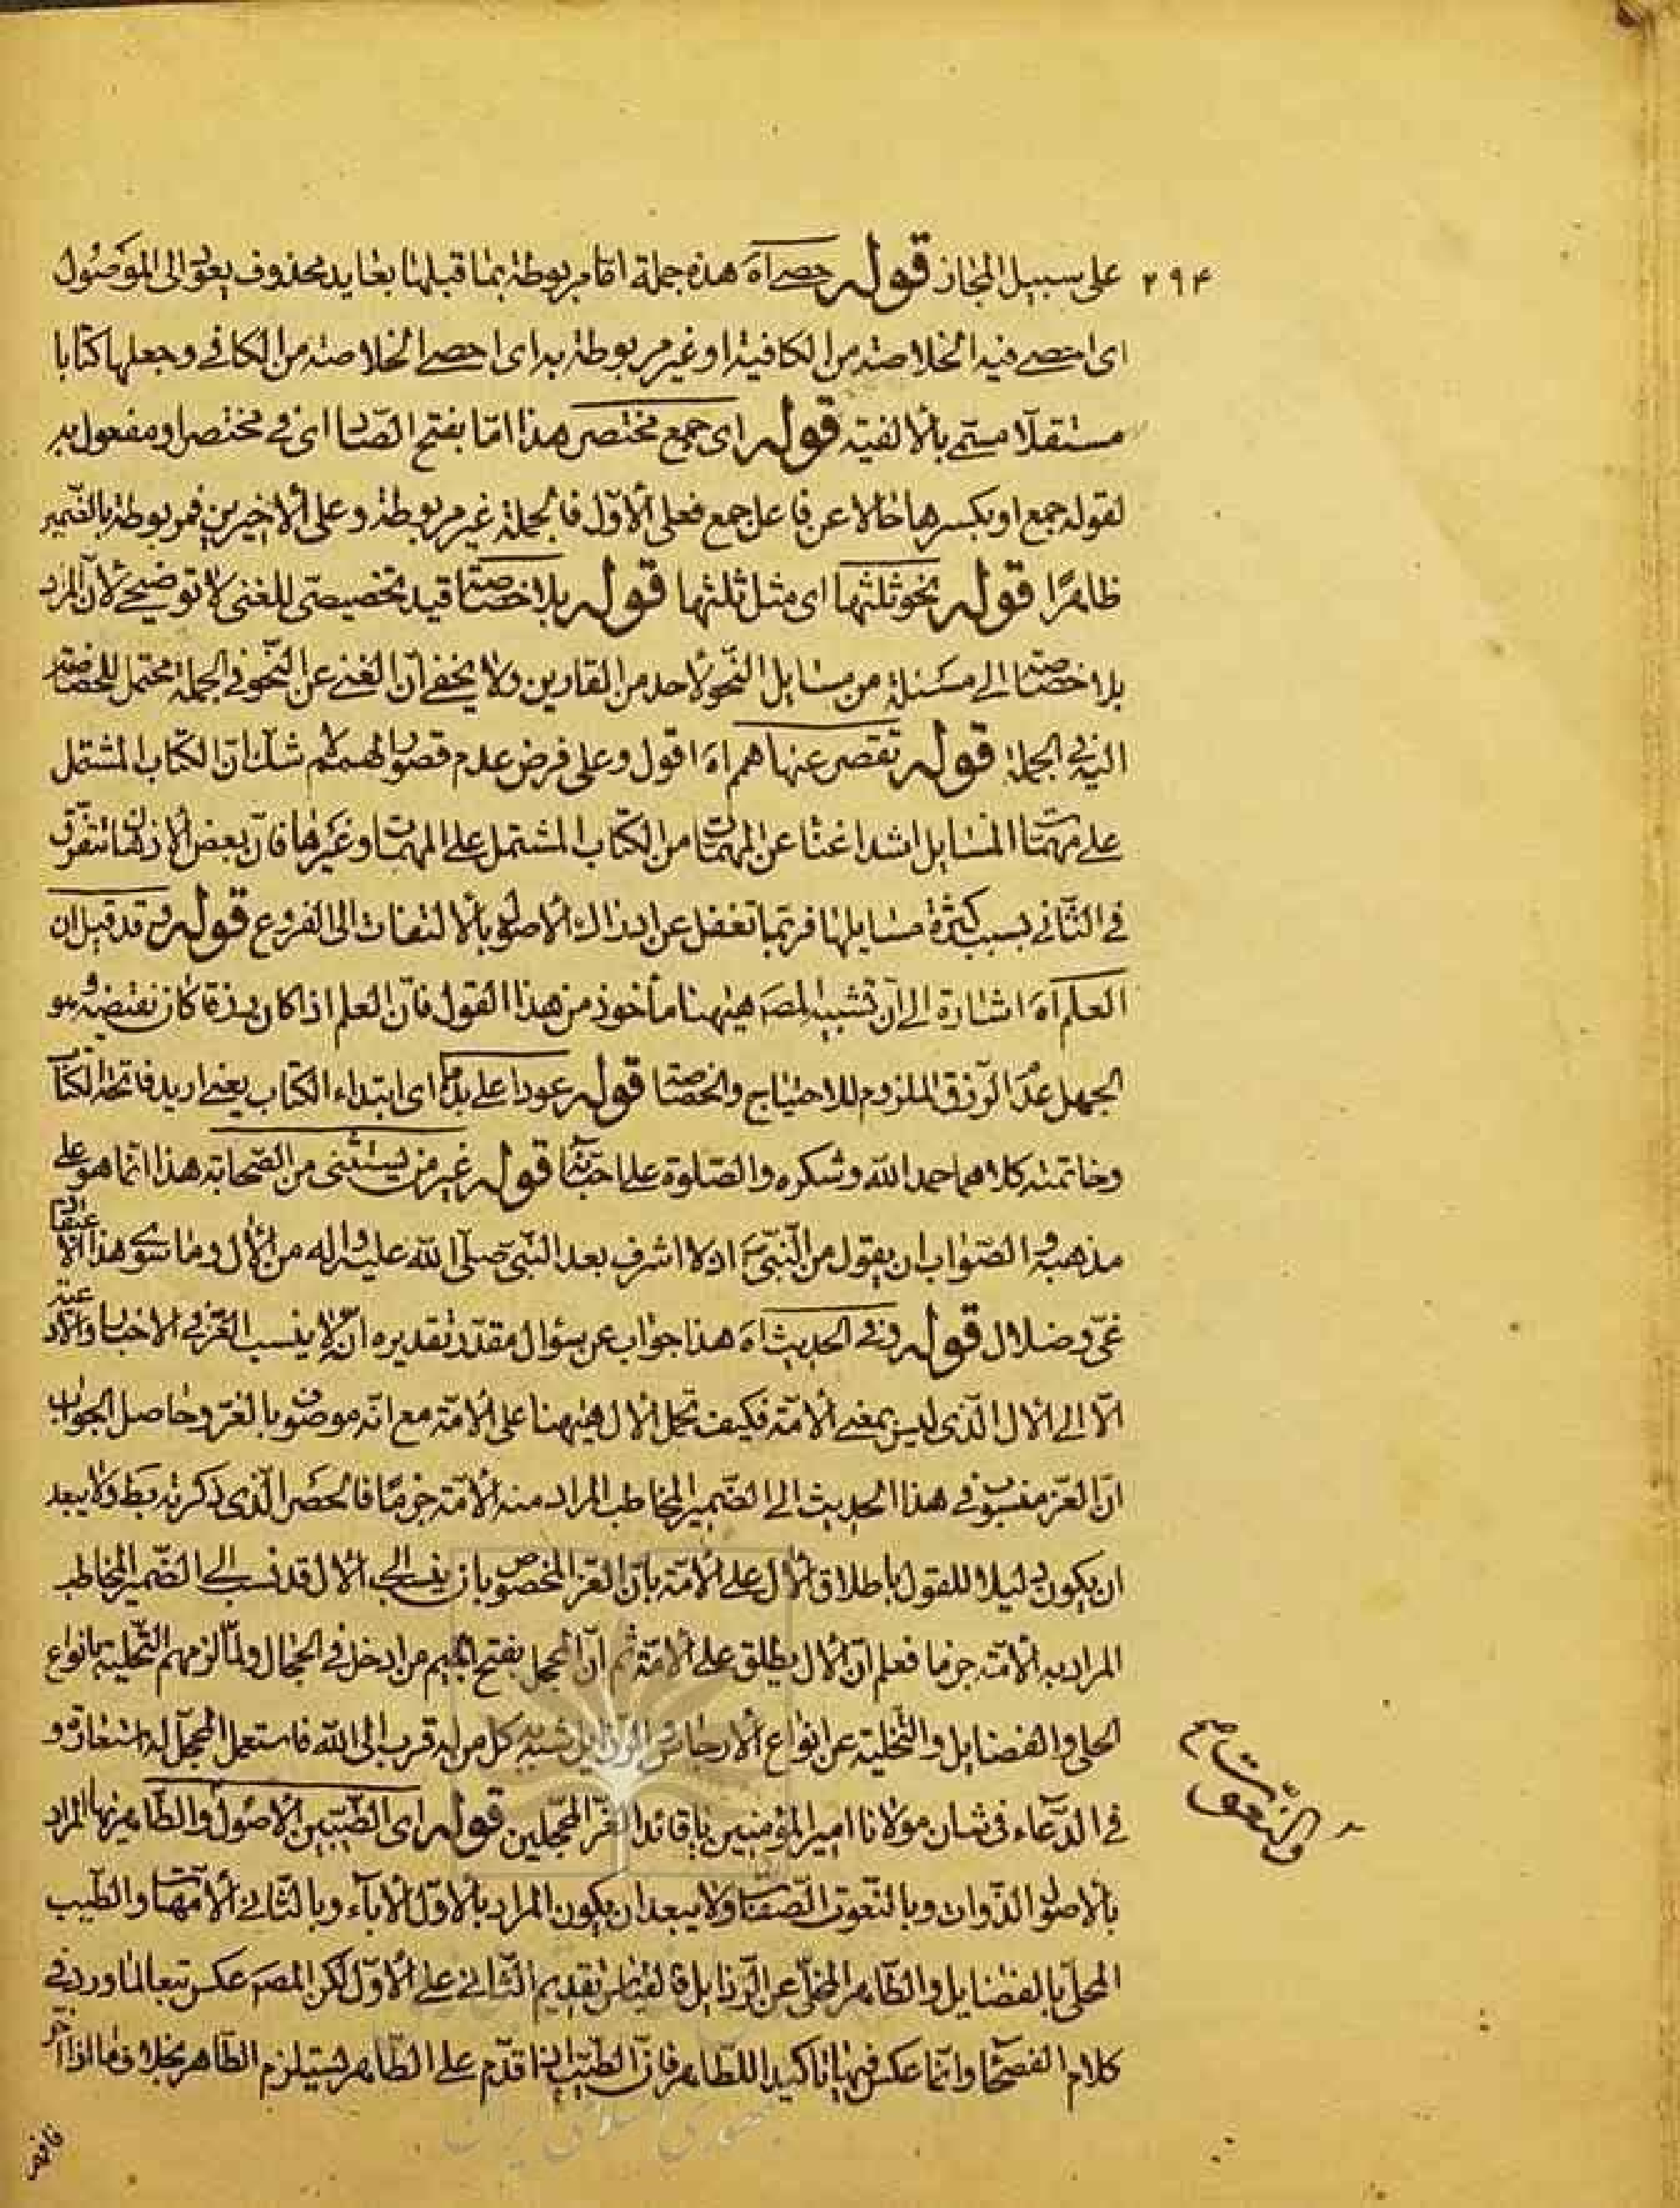 ۲۹۴ على سبيل المجاز قوله حصراه هذه جملة اما مربوطة بما قبلها بعايد محذوف يعود الى الموصول
اى احصى فيه الخلاصة من الكافية او غير مربوطة به اى احصى الخلاصة من الكافى وجعلها كتابا
مستقلا مسمى بالالفية قوله اى جمع مختصر هذا امّا بفتح الصاد اى فى مختصر او مفعول به
لقوله جمع او بكسرها حالا عن فاعل جمع فعلى الاوّل فالجملة غير مربوطة وعلى الاخيرين فمربوطة بالضمير
ظاهرًا قوله نحو ثلثها اى مثل ثلثها قوله بلا خصاصة قيد تخصيصىّ للغنى لا توضيحى لانّ المراد
بلا خصاصة الى مسئلة من مسايل النّحو لاحد من القارين ولا يخفى انّ الغنى عن النّحو فى الجملة محتمل للخصاصة
اليه فى الجملة قوله تقصر عنها هم اه اقول وعلى فرض عدم قصور لهممهم شك انّ الكتاب المشتمل
على مهمّات المسايل اشد اغناء عن المهمّات من الكتاب المشتمل على المهمّات وغيرها فانّ بعض الاذهان تتفرّق
فى الثّانى بسبب كثرة مسايلها فربّما تغفل عن ادراك الاصول بالالتفات الى الفروع قوله وقد قيل ان
العلم اه اشارة الى انّ تشبيه المصـ هيهنا مأخوذ من هذا القول فانّ العلم اذا كان رزقا كان نقيضه وهو
الجهل عدم الرّزق الملزوم للاحتياج والخصاصة قوله عودا على بدء اى ابتداء الكتاب يعنى اريد فاتحة الكتاب
وخاتمته كلاهما حمد الله وشكره والصّلوة على احبّائه قوله غير من يستثنى من الصّحابة هذا انّما هو على
مذهبه والصّواب ان يقول من النّبىّ اذ لا اشرف بعد النّبىّ صلّى الله عليه واله من الآل وما سوى هذا الاعتقاد
غىّ وضلال قوله وفى الحديث اه هذا جواب عن سؤال مقدّر تقديره انّه لا ينسب الغرّ فى الاخبار والادعية
الّا الى الآل الّذى ليس بمعنى الامّة فكيف تحمل الآل هيهنا على الامّة مع انّه موصوف بالغرّ وحاصل الجواب
انّ الغرّ منسوب فى هذا الحديث الى الضّمير المخاطب المراد منه الامّة جزمًا فالحصر الّذى ذكرته بط ولا يبعد
ان يكون دليلا للقول باطلاق الآل على الامّة بانّ الغرّ المخصوص بان ينسب الى الآل قد نسب الى الضّمير المخاطب
المراد به الامّة جزما فعلم انّ الآل يطلق على الامّة ثم انّ المحجل بفتح الجيم من ادخل فى الحجال ولمّا لزمهم التّحلية بانواع
الحلى والفضايل والتّخلية عن انواع الارجاس الرّذايل شبّه كل من له قرب الى الله فاستعمل المحجّل له استعارة و
فى الدّعاء فى شان مولانا امير المؤمنين يا قائد الغرّ المحجّلين قوله اى الطّيّبين الاصول والطّاهريها المراد
والنّعوت صح
بالاصول الذّوات وبالنّعوت الصّفات ولا يبعد ان يكون المراد بالاوّل الآباء وبالثّانى الامّهات والطّيّب
المحلّى بالفضايل والطّاهر المخلّى عن الرّذايل فالقياس تقديم الثّانى على الاوّل لكن المصـ عكس تبعا لما ورد فى
كلام الفصحاء وانّما عكس فيها تاكيدا للطّاهر فانّ الطّيّب اذا قدّم على الطّاهر يستلزم الطّاهر بخلاف ما اذا اخّر